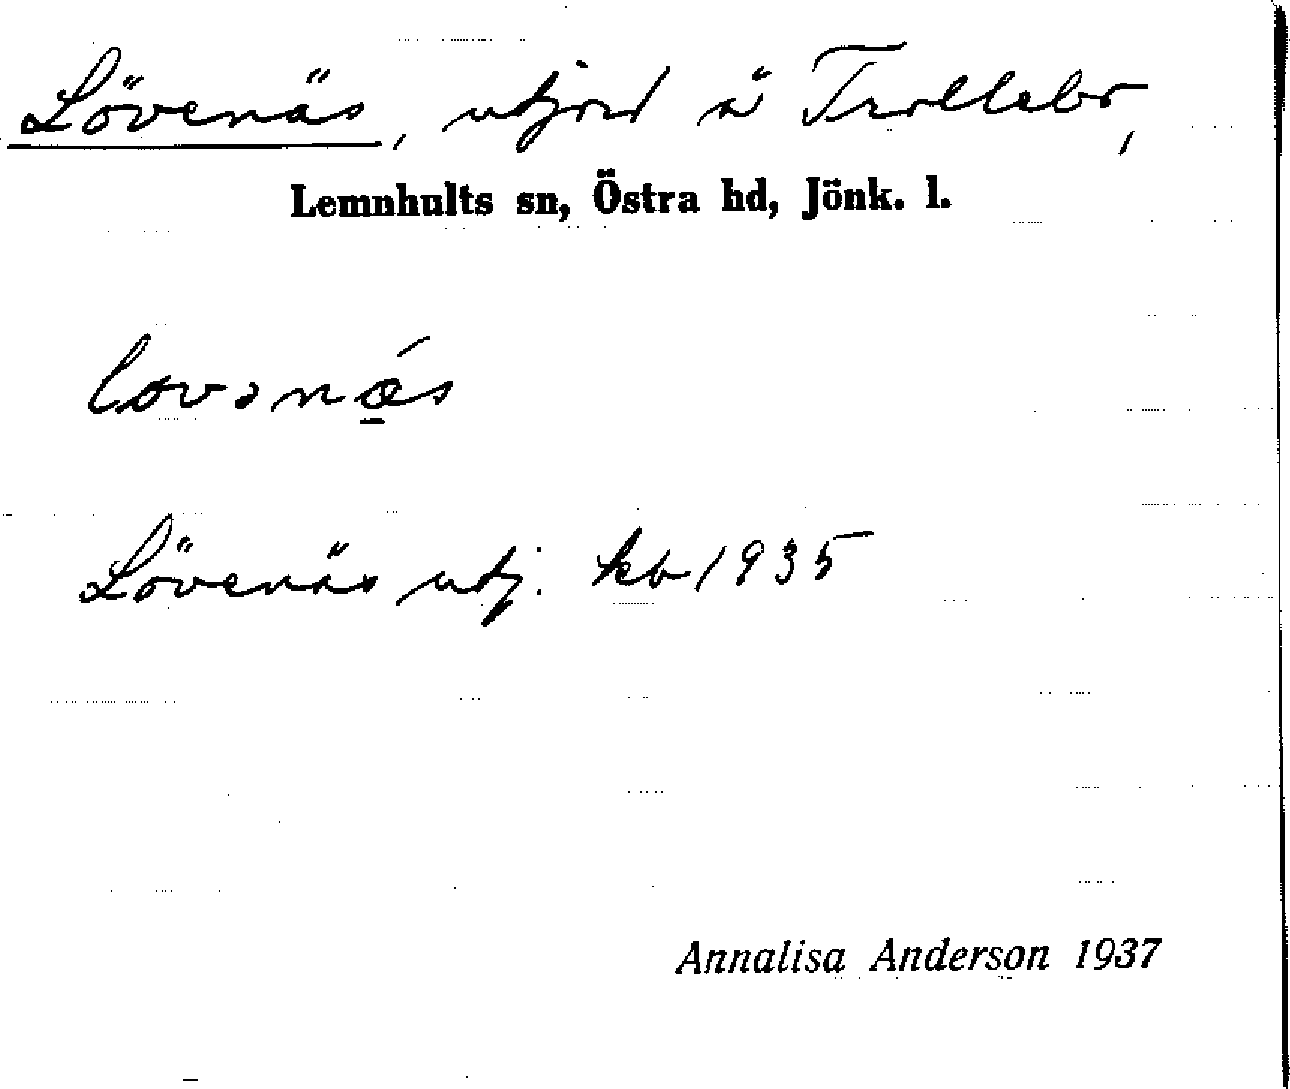 Lövenäs, utjord å Trollebo,
Lemnhults sn, Östra hd, Jönk. l.
løvənǽ̲s
Lövenäs utj. kb 1935
Annalisa Anderson 1937